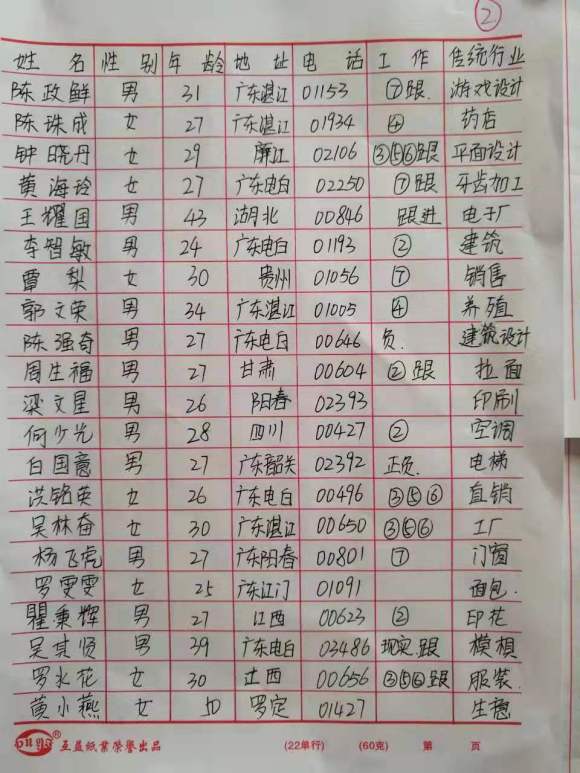 ②
姓名 性别 年龄 地址 电话 工作 传统行业
陈政鲜 男 31 广东湛江 01153 ⑦跟. 游戏设计
陈珠成 女 27 广东湛江 01934 ④ 药店
钟晓丹 女 29 廉江 02106 ③⑤⑥跟 平面设计
黄海玲 女 27 广东电白 02250 ⑦跟 牙齿加工
王耀国 男 43 湖北 00846 跟进 电子厂
李智敏 男 24 广东电白 01193 ② 建筑
覃梨 女 30 贵州 01056 ⑦ 销售
郭文荣 男 34 广东湛江 01005 ④ 养殖
陈强奇 男 27 广东电白 00646 负. 建筑设计
周生福 男 27 甘肃 00604 ②跟 拉面
梁文星 男 26 阳春 02393 印刷
何少光 男 28 四川 00427 ② 空调
白国意 男 27 广东韶关 02392 正负. 电梯
洪铭英 女 26 广东电白 00496 ③⑤⑥ 直销
吴林奋 女 30 广东湛江 00650 ③⑤⑥ 工厂
杨飞虎 男 27 广东阳春 00801 ⑦ 门窗
罗雯雯 女 25 广东江门 01091 面包.
瞿秉辉 男 27 江西 00623 ② 印花
吴其贤 男 39 广东电白 03486 现实.跟 模棋
罗水花 女 30 江西 00656 ③⑤⑥跟 服装.
黄小燕 女 50 罗定 01427 生穗
互益纸业荣誉出品 (22单行) (60克) 第 页